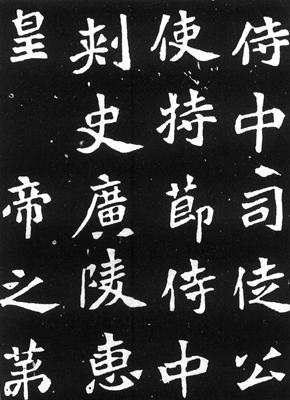 侍中司徒公
使持節侍中
刺史廣陵惠
皇帝之弟